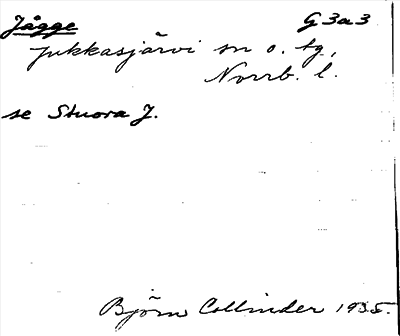 Jågge G 3a3
Jukkasjärvi sn o. tg,
Norrb. l.
se Stuora J.
Björn Collinder 1935.